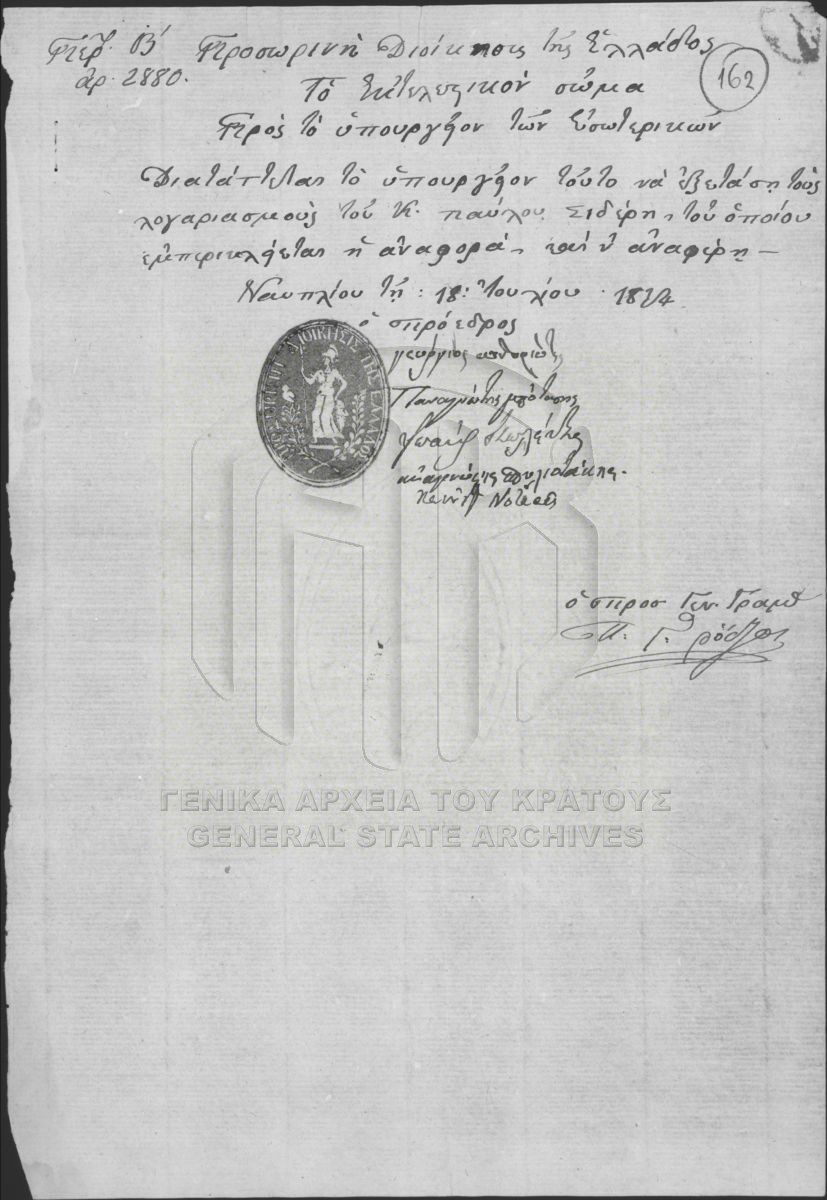 Περ. Β΄ Προσωρινὴ Διοίκησις τῆς Ἑλλάδος
ἀρ. 2880.
162
Τὸ Ἐκτελεστικὸν σῶμα
Πρὸς τὸ ὑπουργεῖον τῶν Ἐσωτερικῶν
Διατάττεται τὸ ὑπουργεῖον τοῦτο νὰ ἐξετάσῃ τοὺς
λογαριασμοὺς τοῦ Κ. Παύλου Σιδέρη, τοῦ ὁποίου
ἐμπερικλείεται ἡ ἀναφορὰ, καὶ ν' ἀναφέρῃ —
Ναυπλίου τῇ : 18: Ἰουλίου 1824
ὁ πρόεδρος
γεώργιος κουντουριότης
Παναγιώτης μπότασης
Ἰωάννης Κωλέττης
ΠΡΟΣΩΡΙΝΗ ΔΙΟΙΚΗΣΙΣ ΤΗΣ ΕΛΛΑΔΟΣ
ὁ προσ Γεν. Γραμ
Π. Γ. Ῥόδιος
ΓΕΝΙΚΑ ΑΡΧΕΙΑ ΤΟΥ ΚΡΑΤΟΥΣ
GENERAL STATE ARCHIVES